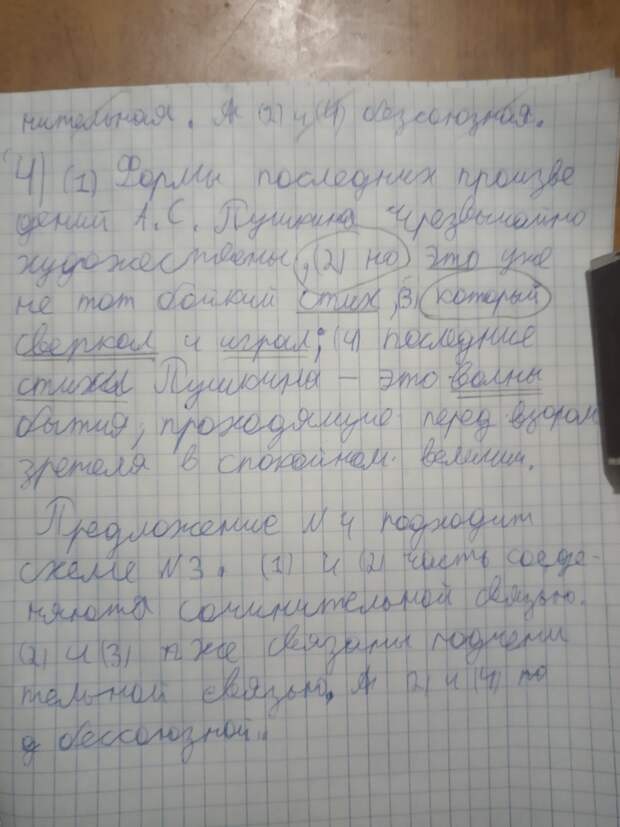 нительная. А (2) и (4) безсоюзная.
4) (1) Формы последних произве
дений А.С. Пушкина чрезвычайно
художественны, (2) но это уже
не тот бойкий стих, (3) который
сверкал и играл; (4) последние
стихи Пушкина – это волны
бытия, проходящие перед взором
зрителя в спокойном величии.
Предложение N4 подходит
схеме N3. (1) и (2) часть соеде-
няются сочинительной связью.
(2) и (3) же связаны подчени
тельной связью. А (2) и (4) по
бессоюзной.